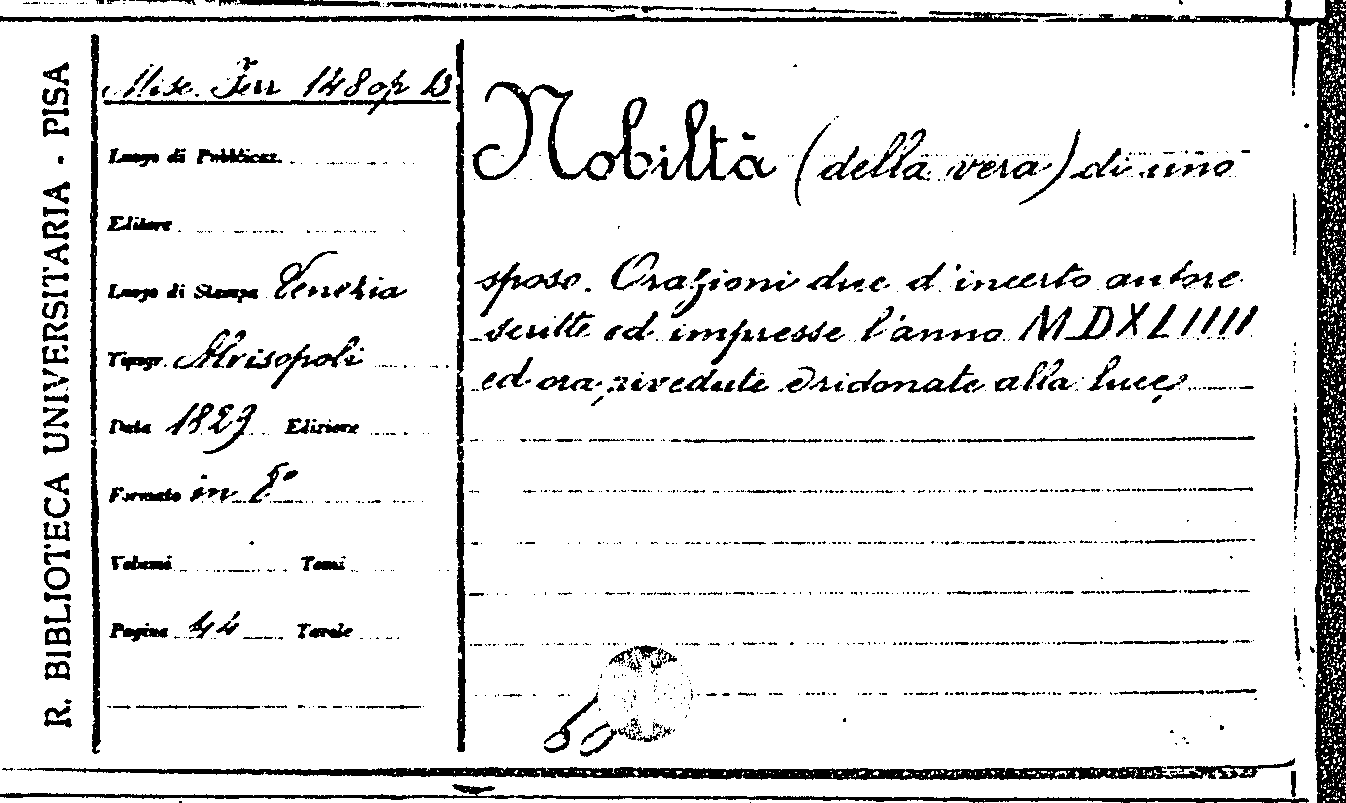 R. BIBLIOTECA UNIVERSITARIA - PISA
Misc. Ferr 148 op 13
Luogo di Pubblicaz.
Editore
Luogo di Stampa Venezia
Tipogr. Alvisopoli
Data 1829 Edizione
Formato in 8°
Volumi Tomi
Pagine 44 Tavole
Nobiltà (della vera) di uno
sposo. Orazioni due d'incerto autore
scritte ed impresse l'anno MDXLIIII
ed ora rivedute e ridonate alla luce